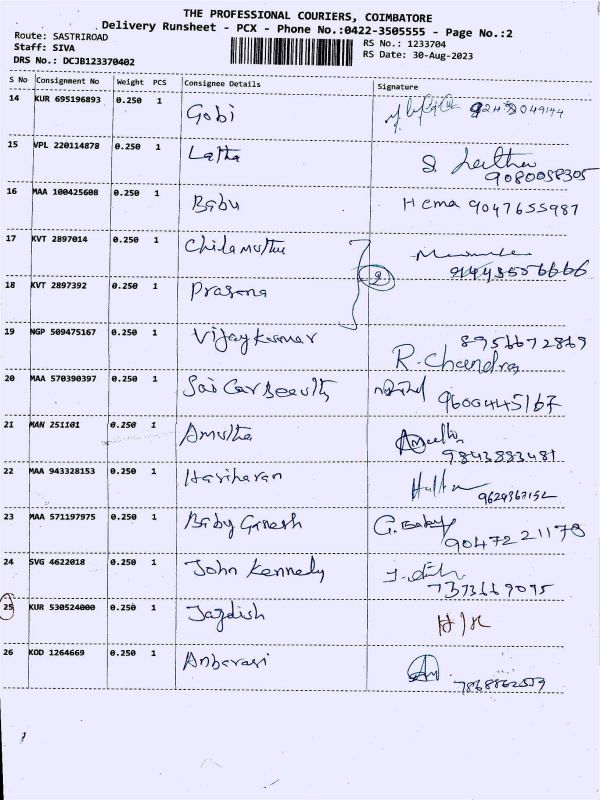 THE PROFESSIONAL COURIERS, COIMBATORE
Delivery Runsheet - PCX - Phone No.:0422-3505555 - Page No.:2
Route: SASTRIROAD
Staff: SIVA
DRS No.: DCJB123370402
RS No.: 1233704
RS Date: 30-Aug-2023
S No Consignment No Weight PCS Consignee Details Signature
14 KUR 695196893 0.250 1 Gobi
15 VPL 220114878 0.250 1 Latha S. Laitha
9080058305
16 MAA 100425608 0.250 1 Babu Hema 9047655987
17 KVT 2897014 0.250 1 Chilamuthu
2
18 KVT 2897392 0.250 1 Prasona
19 NGP 509475167 0.250 1 Vijaykumar 8956672869
R. Chandra
20 MAA 570390397 0.250 1 9600445167
21 MAN 251101 0.250 1 Amutha Amutha
9843883481
22 MAA 943328153 0.250 1 Hariharan
23 MAA 571197975 0.250 1 Baby Ganesh G. Baby
9047221178
24 SVG 4622018 0.250 1 John Kennedy
7373669095
25 KUR 530524000 0.250 1 Jagdish
26 KOD 1264669 0.250 1 Anbarasi